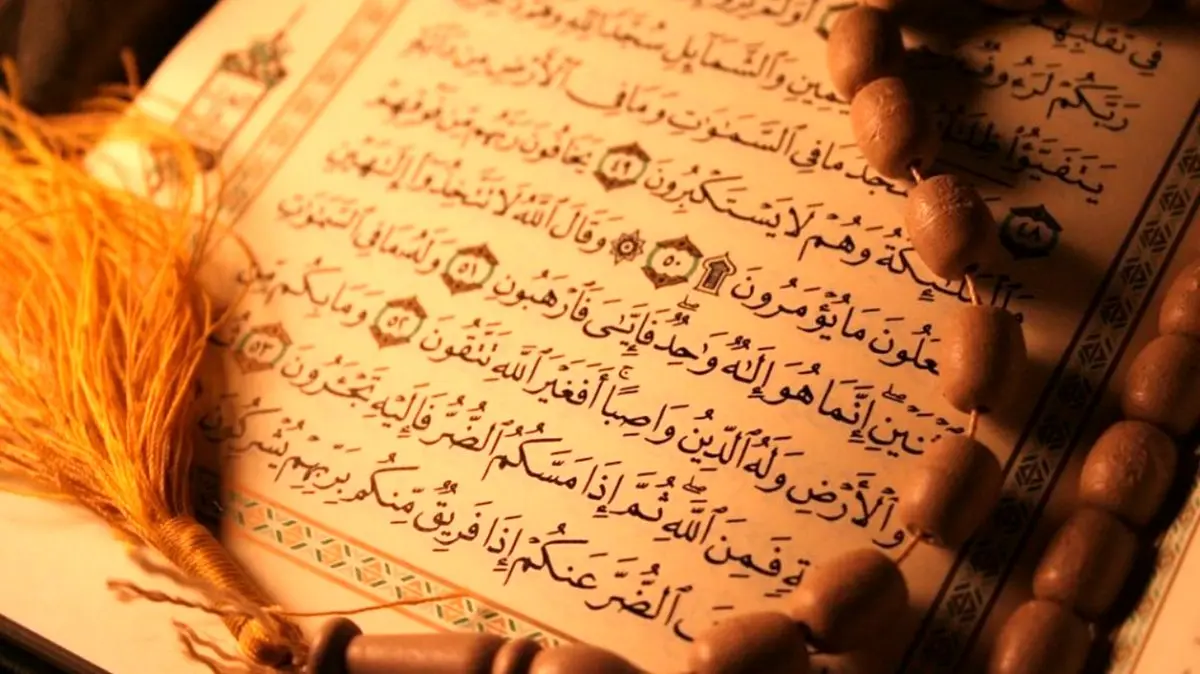 فِي تَقَلُّبِهِمْ
رَبَّكُمْ لَرَءُوفٌ أَوَلَمْ يَرَوْا۟
يَتَفَيَّؤُا۟ ظِلَـٰلُهُۥ وَٱلشَّمَآئِلِ سُجَّدًا لِّلَّهِ وَهُمْ
﴿٤٨﴾ مَا فِي ٱلسَّمَـٰوَٰتِ وَمَا فِي ٱلْأَرْضِ مِن دَآبَّةٍ
وَٱلْمَلَـٰٓئِكَةُ وَهُمْ لَا يَسْتَكْبِرُونَ ﴿٤٩﴾ يَخَافُونَ رَبَّهُم مِّن فَوْقِهِمْ
عَلُونَ مَا يُؤْمَرُونَ ۩ ﴿٥٠﴾ ۞ وَقَالَ ٱللَّهُ لَا تَتَّخِذُوٓا۟ إِلَـٰهَيْنِ
نَيْنِ ۖ إِنَّمَا هُوَ إِلَـٰهٌ وَٰحِدٌ ۖ فَإِيَّـٰيَ فَٱرْهَبُونِ ﴿٥١﴾ وَلَهُۥ مَا فِي ٱلسَّمَـٰوَٰتِ
وَٱلْأَرْضِ وَلَهُ ٱلدِّينُ وَاصِبًا ۚ أَفَغَيْرَ ٱللَّهِ تَتَّقُونَ ﴿٥٢﴾ وَمَا بِكُم مِّن
ةٍ فَمِنَ ٱللَّهِ ۖ ثُمَّ إِذَا مَسَّكُمُ ٱلضُّرُّ فَإِلَيْهِ تَجْـَٔرُونَ ﴿٥٣﴾
فَ ٱلضُّرَّ عَنكُمْ إِذَا فَرِيقٌ مِّنكُم بِرَبِّهِمْ يُشْرِكُونَ